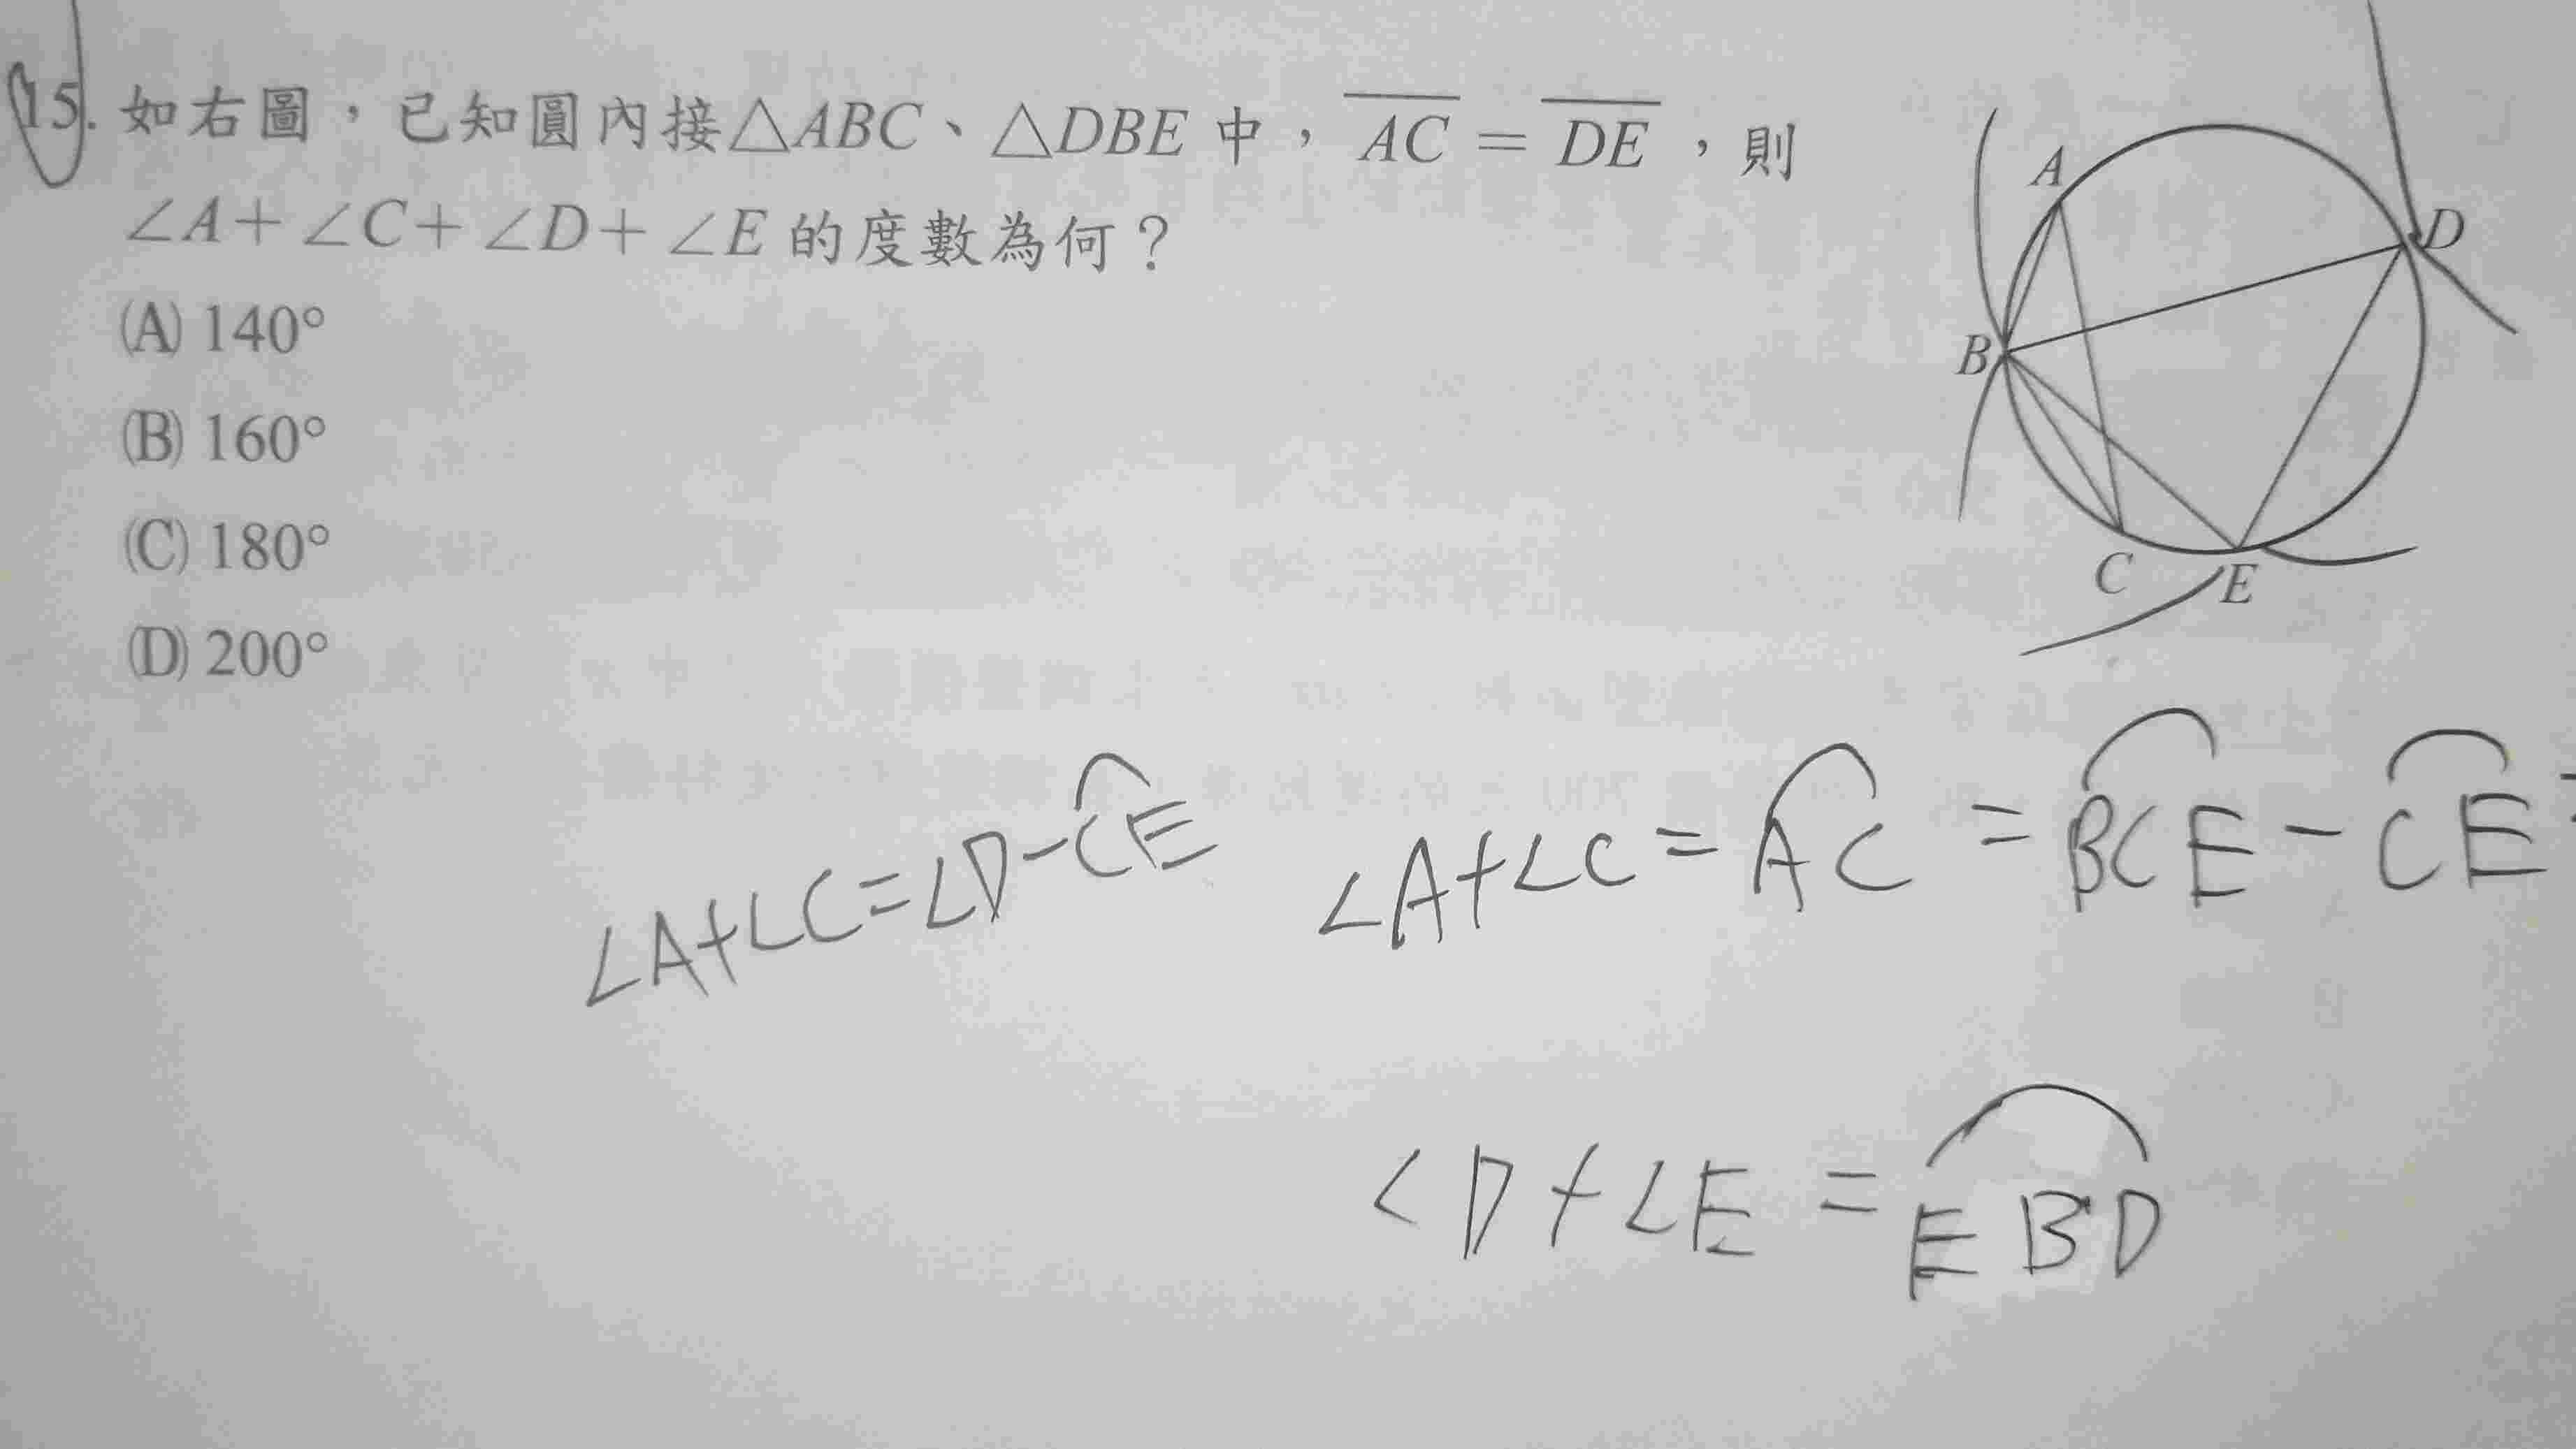 15. 如右圖,已知圓內接△ABC、△DBE中,AC=DE,則
∠A+∠C+∠D+∠E的度數為何?
(A) 140°
(B) 160°
(C) 180°
(D) 200°
A
D
B
C
E
∠A+∠C=∠D-CE
∠A+∠C=AC=BCE-CE
∠D+∠E=EBD